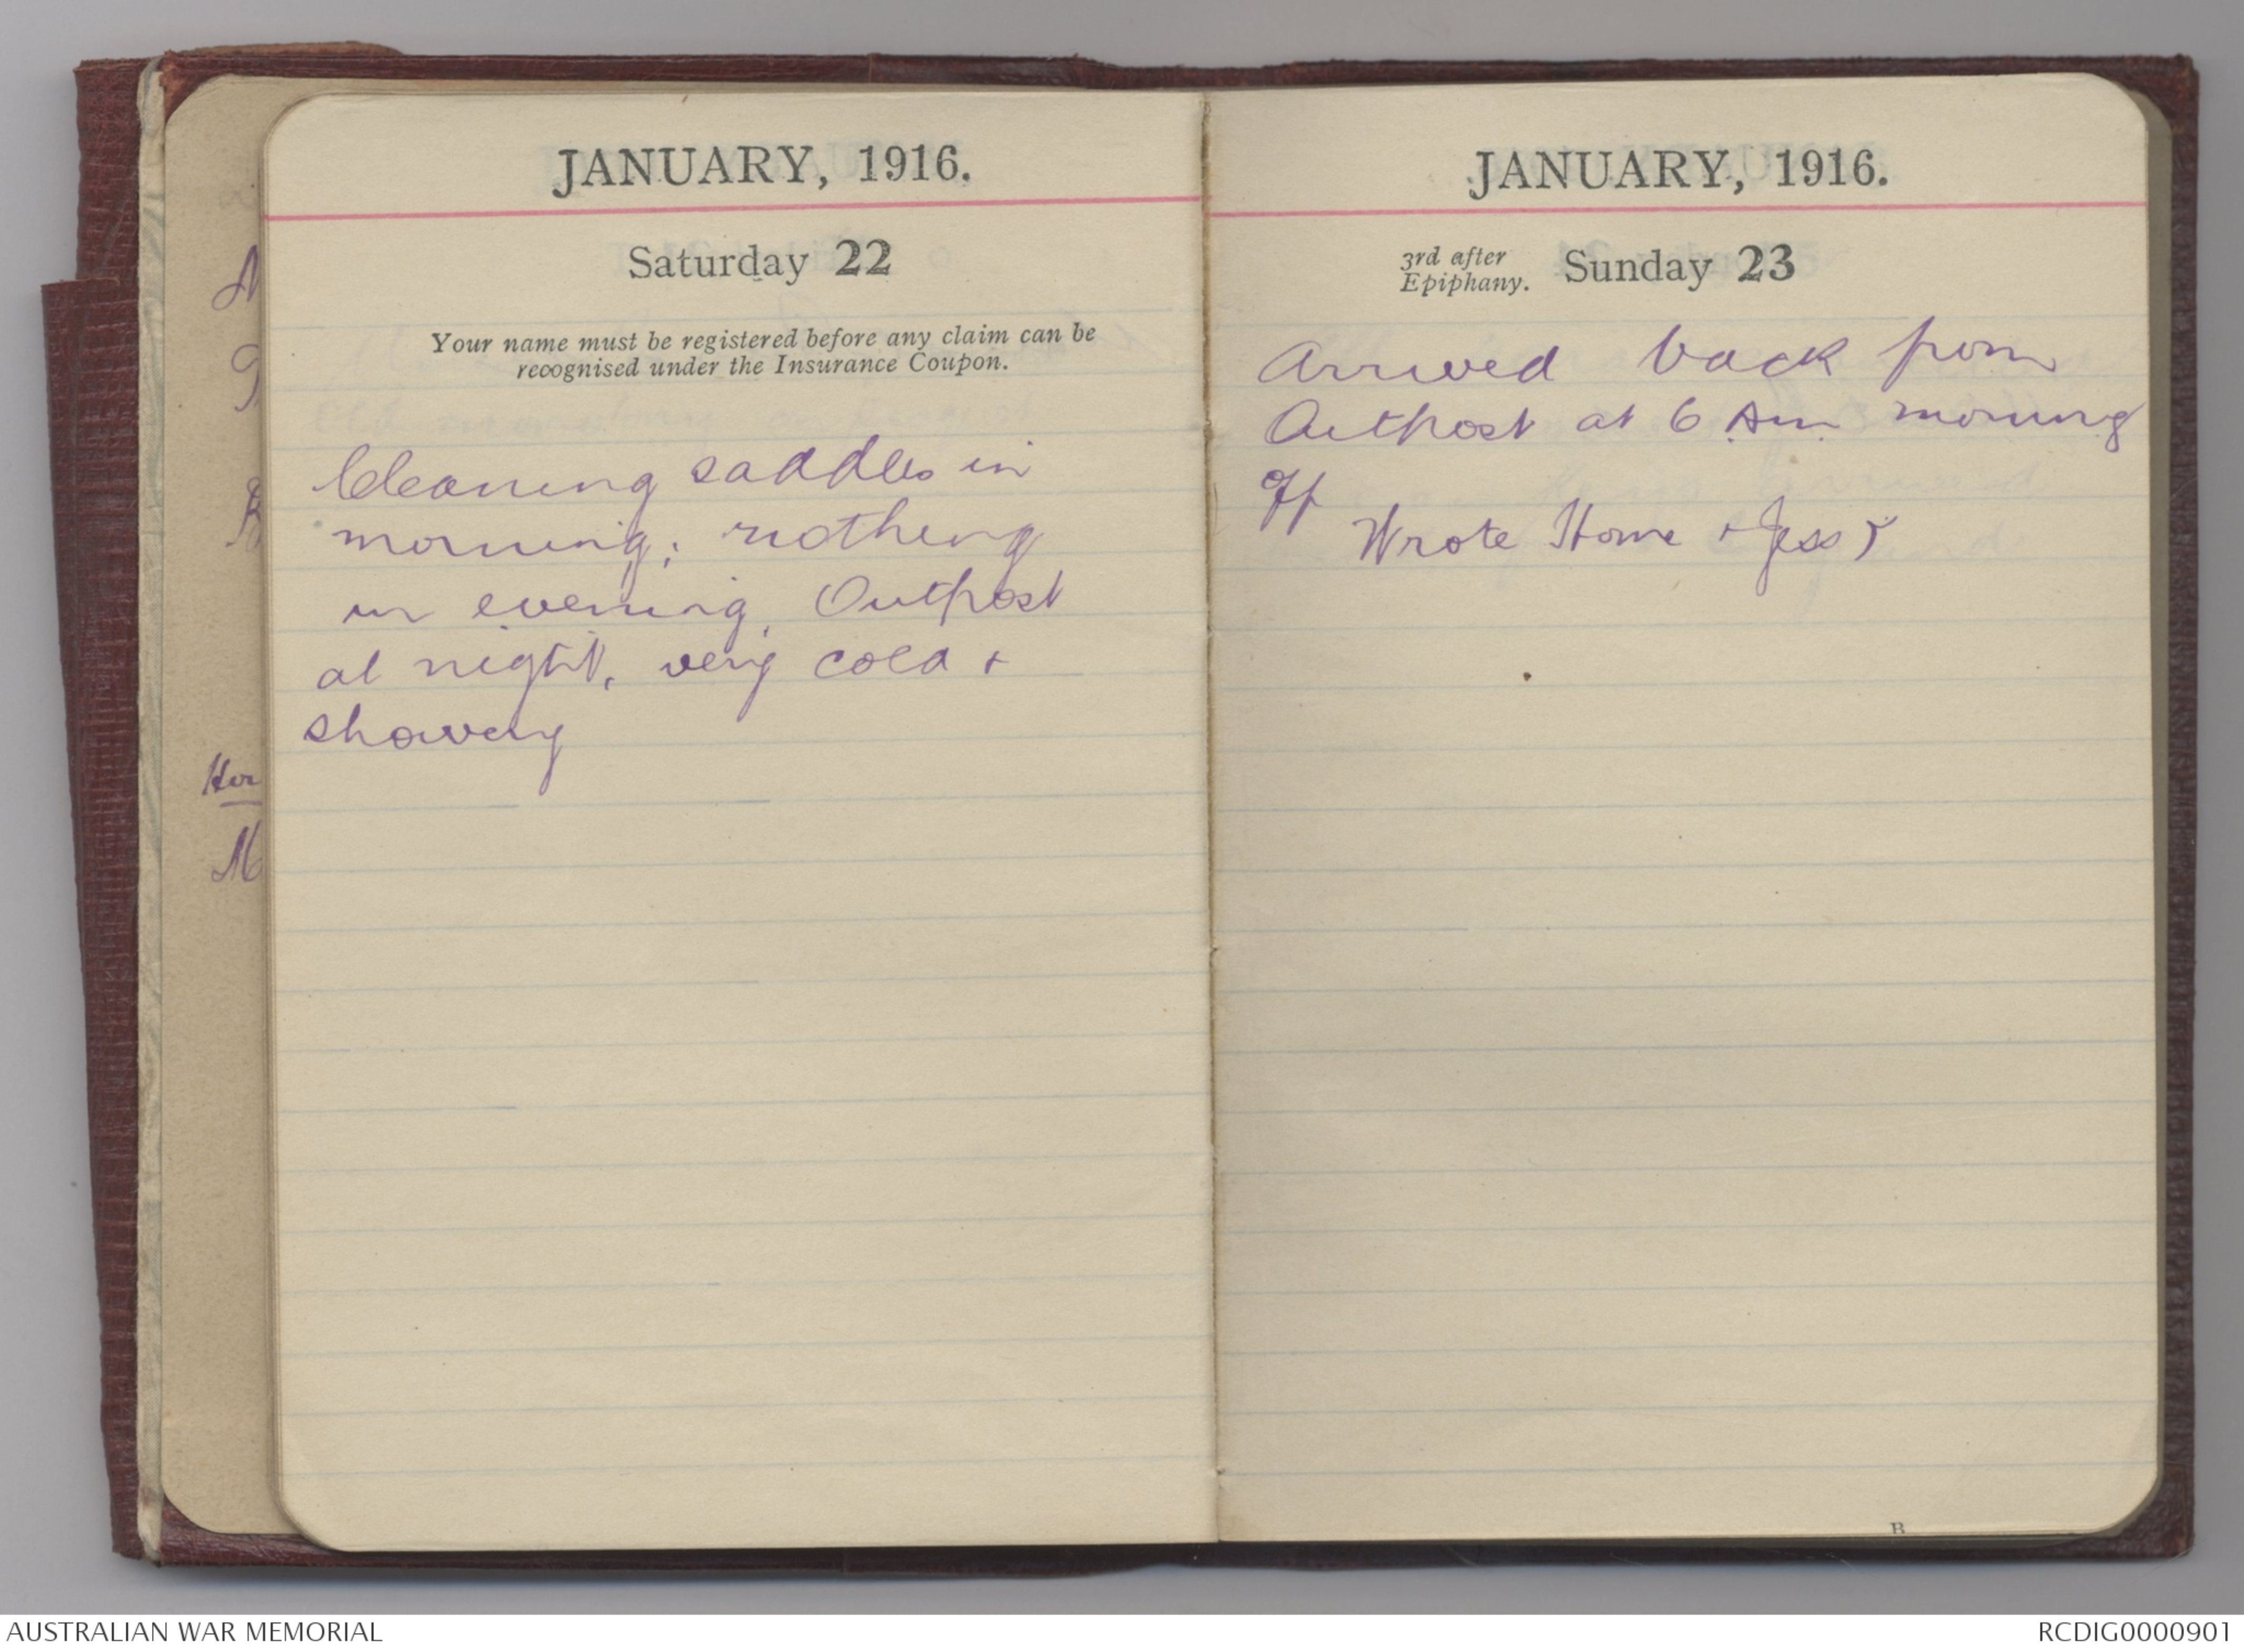 JANUARY, 1916.
Saturday 22
Your name must be registered before any claim can be
recognised under the Insurance Coupon.
Cleaning saddles in
morning; nothing
in evening, Outpost
at night, very cold +
showery
JANUARY, 1916.
3rd after
Epiphany. Sunday 23
Arrived back from
Outpost at 6 Am morning
off
Wrote Home + Jess
B
AUSTRALIAN WAR MEMORIAL
RCDIG0000901